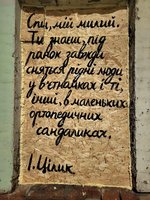 Спи, мій милий.
Ти знаєш, під
ранок завжди
сняться рідні люди
у в'єтнамках і ті,
інші, в маленьких
ортопедичних
сандаликах.
І. Цілик.